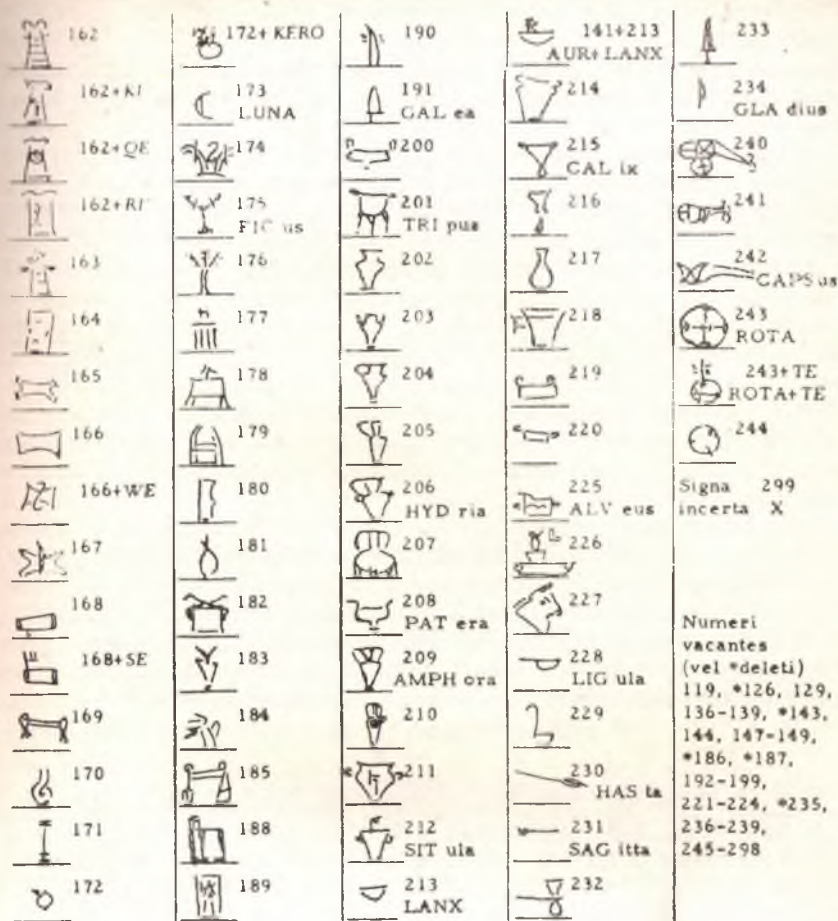 162
162+KI
162+QE
162+RI
163
164
165
166
166+WE
167
168
168+SE
169
170
171
172
172+KERO
173
LUNA
174
175
FIC us
176
177
178
179
180
181
182
183
184
185
188
189
190
191
GAL ea
200
201
TRI pus
202
203
204
205
206
HYD ria
207
208
PAT era
209
AMPH ora
210
211
212
SIT ula
213
LANX
141+213
AUR+LANX
214
215
CAL ix
216
217
218
219
220
225
ALV eus
226
227
228
LIG ula
229
230
HAS ta
231
SAG itta
232
233
234
GLA dius
240
241
242
CAPS us
243
ROTA
243+TE
ROTA+TE
244
Signa 299
incerta X
Numeri
vacantes
(vel *deleti)
119, *126, 129,
136-139, *143,
144, 147-149,
*186, *187,
192-199,
221-224, *235,
236-239,
245-298